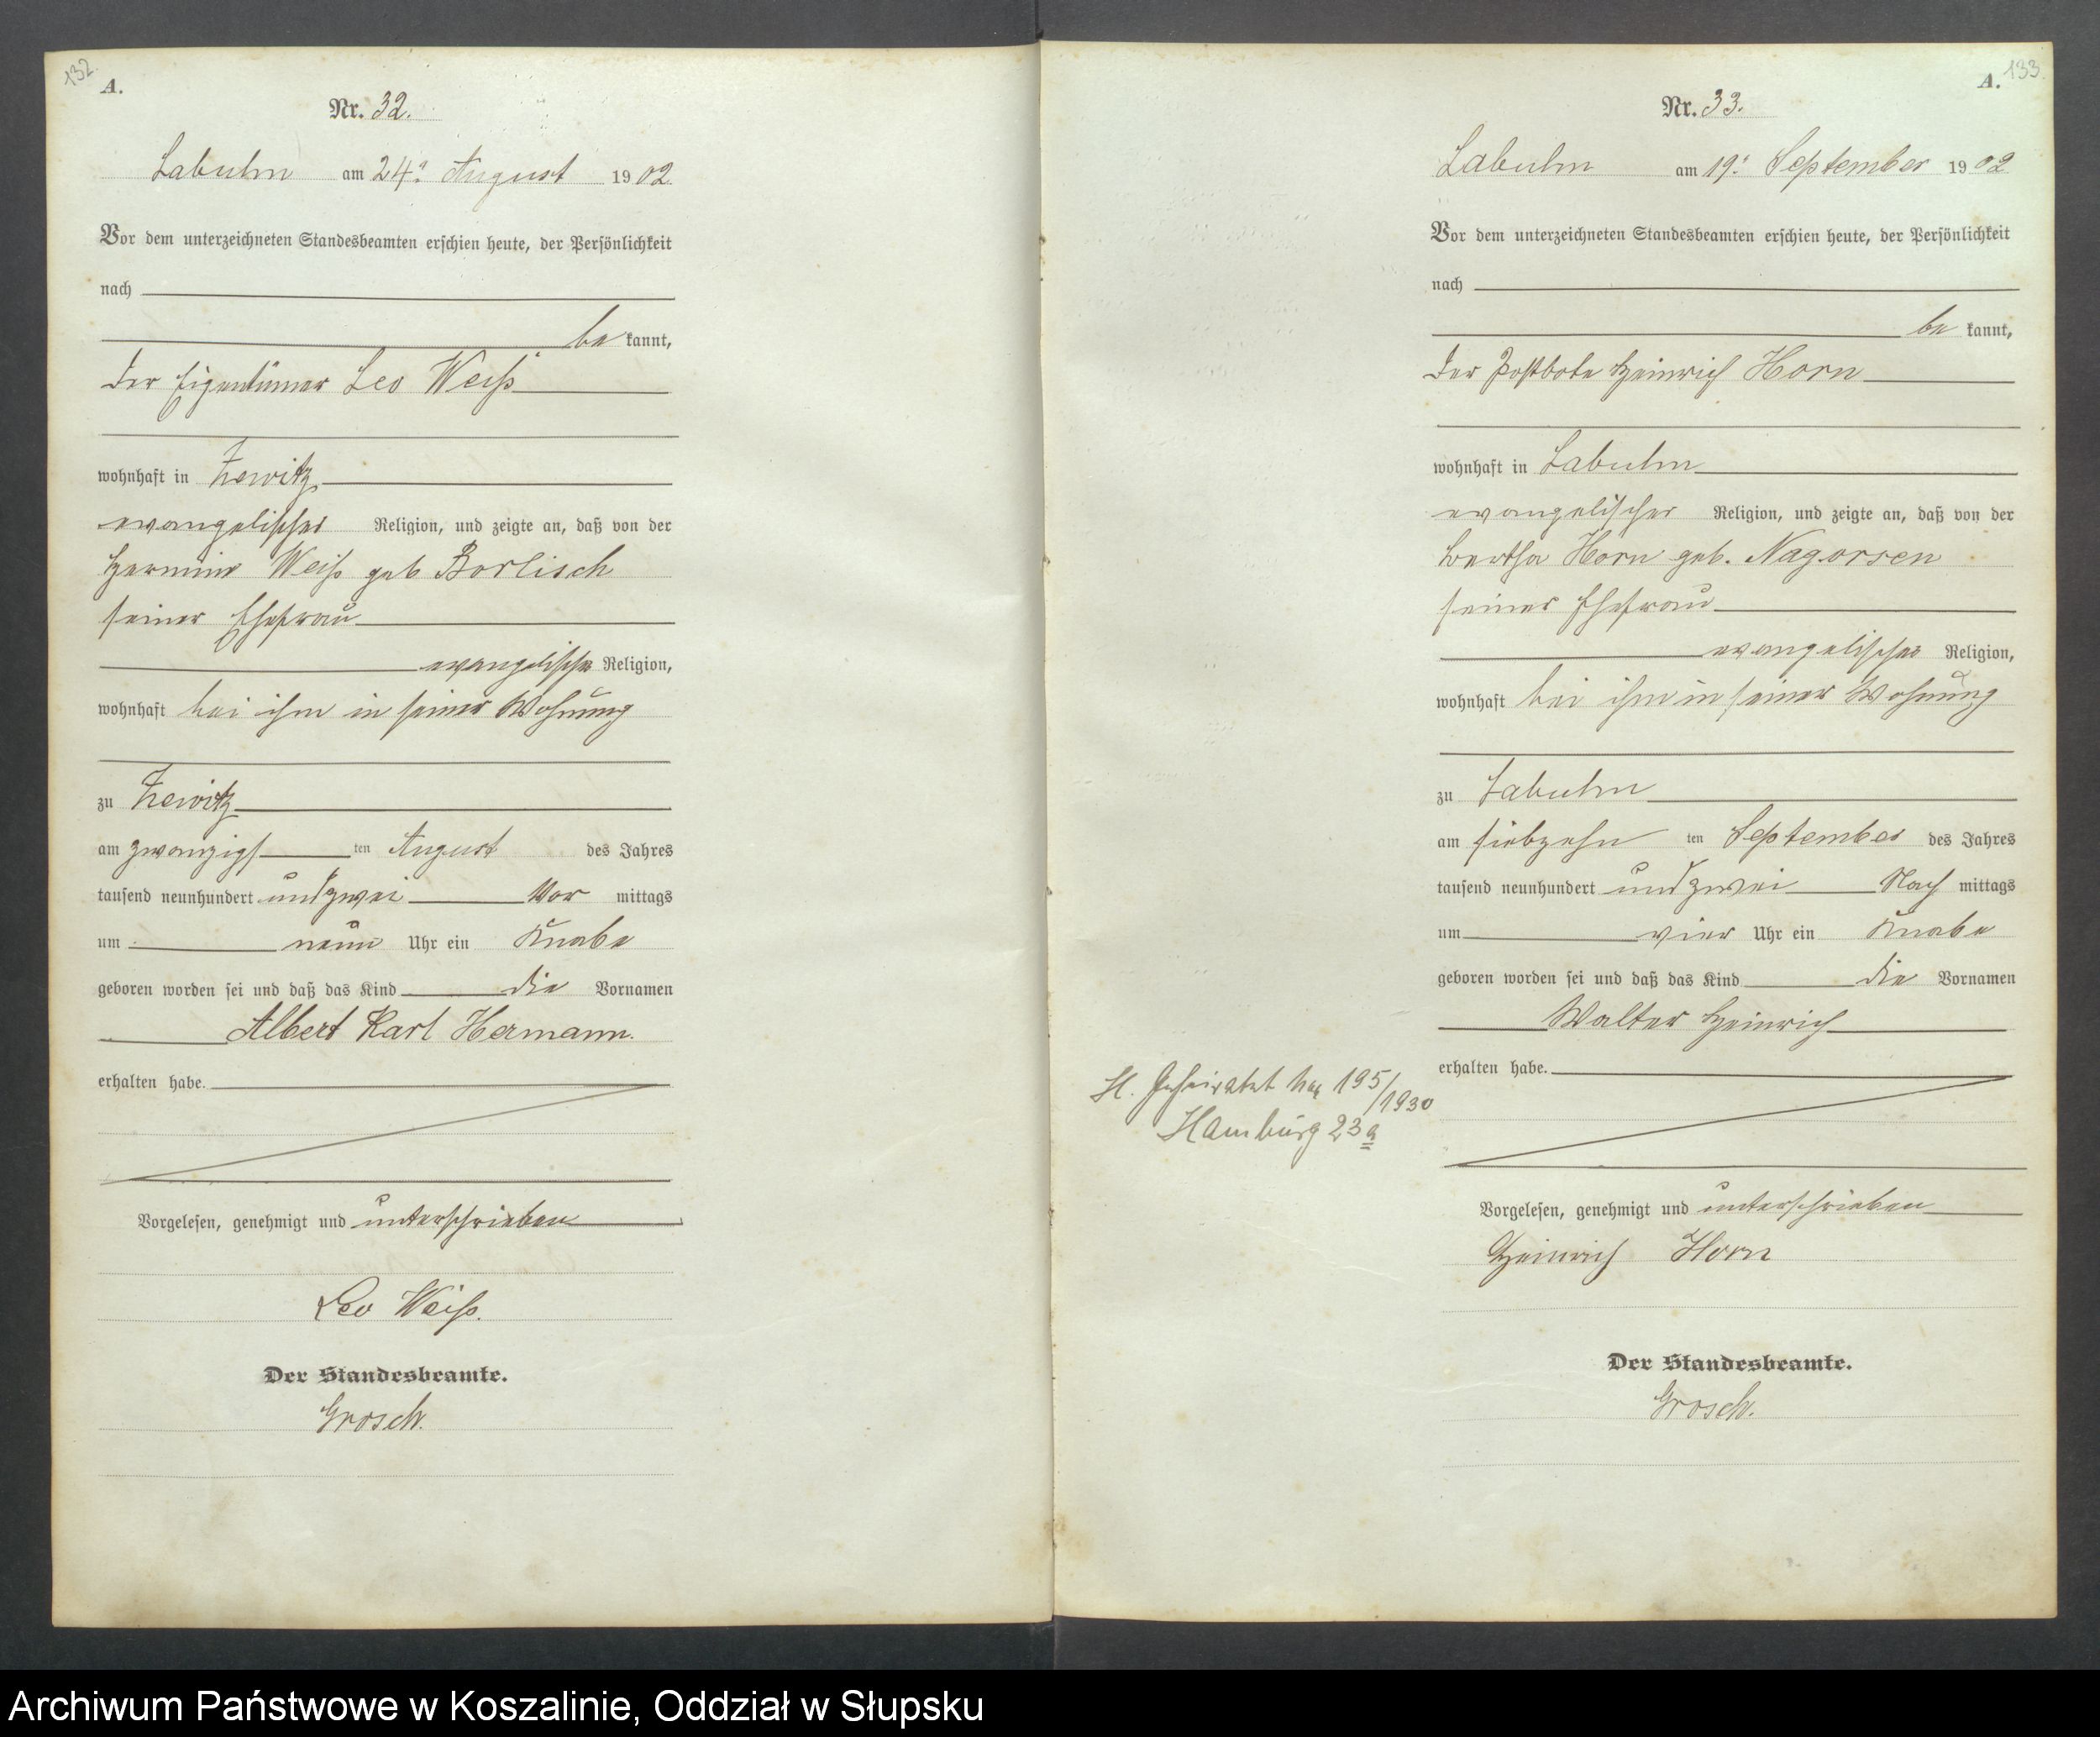 132.
A.
Nr. 32.
Labuhn am 24. August 1902
Vor dem unterzeichneten Standesbeamten erschien heute, der Persönlichkeit
nach
be kannt,
der Eigentümer Leo Weiß
wohnhaft in Zewitz
evangelischer Religion, und zeigte an, daß von der
Hermine Weiß geb Borlisch
seiner Ehefrau
evangelischer Religion,
wohnhaft bei ihm in seiner Wohnung
zu Zewitz
am zwanzigs ten August des Jahres
tausend neunhundert und zwei Vor mittags
um neun Uhr ein Knabe
geboren worden sei und daß das Kind die Vornamen
Albert Karl Hermann.
erhalten habe.
Vorgelesen, genehmigt und unterschrieben
Leo Weiß.
Der Standesbeamte.
Grosch.
A. 133.
Nr. 33.
Labuhn am 19. September 1902
Vor dem unterzeichneten Standesbeamten erschien heute, der Persönlichkeit
nach
be kannt,
der Postbote Heinrich Horn
wohnhaft in Labuhn
evangelischer Religion, und zeigte an, daß von der
Bertha Horn geb. Nagorsen
seiner Ehefrau
evangelischer Religion,
wohnhaft bei ihm in seiner Wohnung
zu Labuhn
am siebzehn ten September des Jahres
tausend neunhundert und zwei Nach mittags
um vier Uhr ein Knabe
geboren worden sei und daß das Kind die Vornamen
Walter Heinrich
erhalten habe.
H. Geheiratet 195/1930
Hamburg 23a
Vorgelesen, genehmigt und unterschrieben
Heinrich Horn
Der Standesbeamte.
Grosch.
Archiwum Państwowe w Koszalinie, Oddział w Słupsku